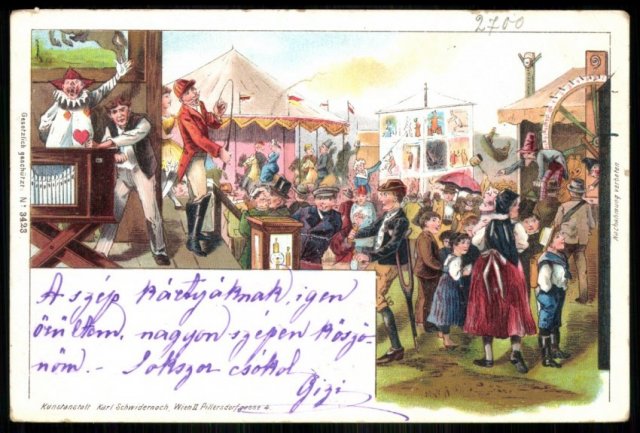 2700
Gesetzlich geschützt. No 3423
Nachahmung verboten
A szép kártyáknak, igen
örültem, nagyon szépen köszö-
nöm. - Sokszor csókol
Gizi
Kunstanstalt Karl Schwidernoch, Wien II. Pillersdorfgasse 4.